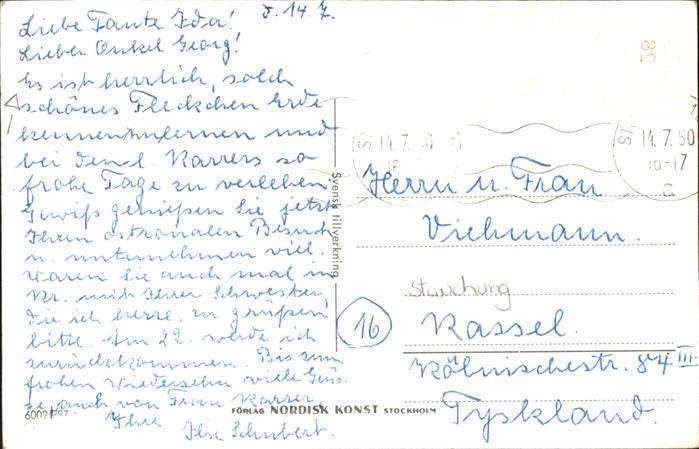 Liebe Tante Ida! d. 14. 7.
Lieber Onkel Georg!
Es ist herrlich, solch
schönes Fleckchen Erde
kennenzulernen und
bei den l. Karrers so
frohe Tage zu verleben.
Gewiß genießen Sie jetzt
Ihren Besuch
u. unternehmen viel.
Waren Sie auch mal in
Kr. mit Ihrer Schwester,
die ich herzl. zu grüßen
bitte. Am 22. werde ich
zurückkommen. Bis zum
frohen Wiedersehn viele Grüs-
se, auch von Frau Karrer
Ihre
Ilse Schubert.
60071/87
Svensk tillverkning
FÖRLAG NORDISK KONST STOCKHOLM
58
14.7.
14.7.60
16-17
Herrn u. Frau
Viehmann.
16
Kassel.
Kölnischestr. 84 III
Tyskland.